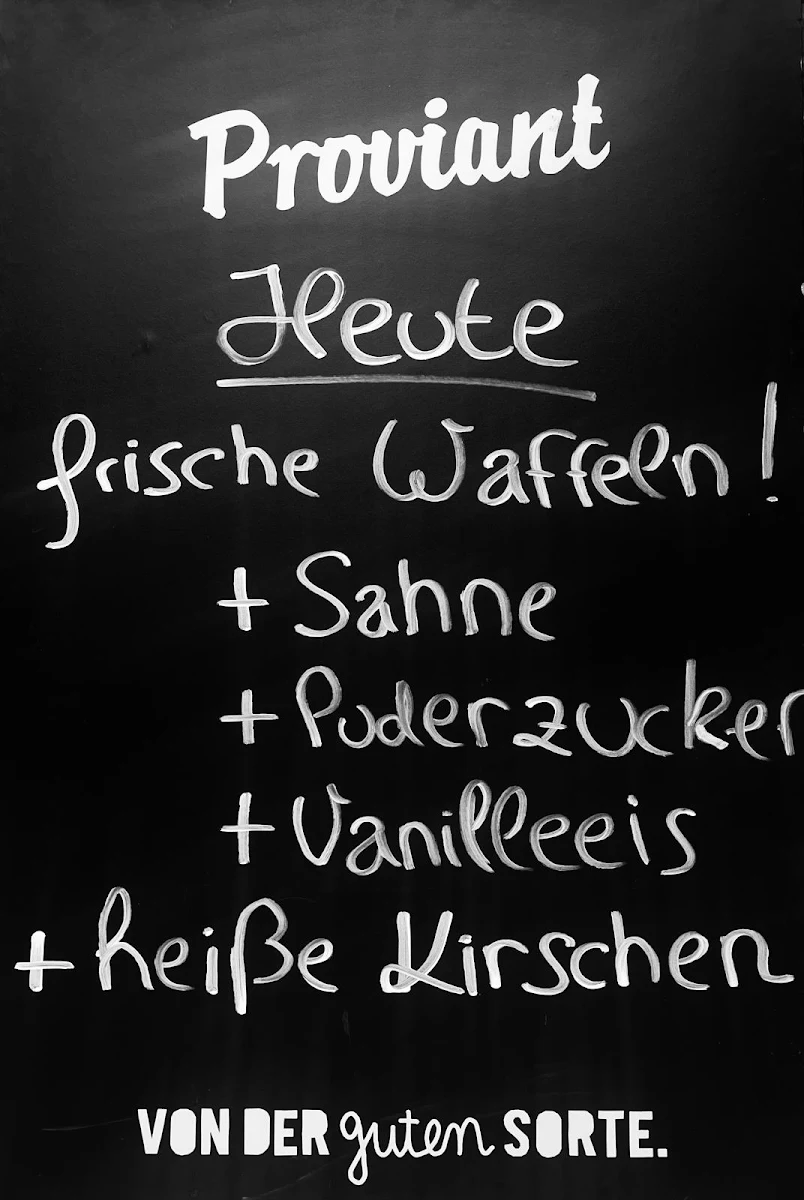 Proviant
Heute
frische Waffeln!
+ Sahne
+ Puderzucker
+ Vanilleeis
+ heiße Kirschen
VON DER guten SORTE.